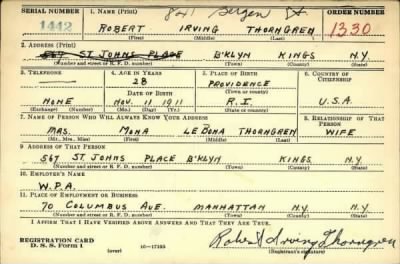 SERIAL NUMBER 1. NAME (Print) 821 Bergen St ORDER NUMBER
1442 ROBERT IRVING THORNGREN 1330
(First) (Middle) (Last)
2. ADDRESS (Print)
567 ST. JOHNS PLACE B'KLYN KINGS N.Y.
(Number and street or R. F. D. number) (Town) (County) (State)
3. TELEPHONE 4. AGE IN YEARS 5. PLACE OF BIRTH 6. COUNTRY OF CITIZENSHIP
28 PROVIDENCE
DATE OF BIRTH (Town or county)
NONE NOV. 11 1911 R.I. U.S.A.
(Exchange) (Number) (Mo.) (Day) (Yr.) (State or country)
7. NAME OF PERSON WHO WILL ALWAYS KNOW YOUR ADDRESS 8. RELATIONSHIP OF THAT PERSON
MRS. MONA LE BONA THORNGREN WIFE
(Mr., Mrs., Miss) (First) (Middle) (Last)
9. ADDRESS OF THAT PERSON
567 ST. JOHNS PLACE B'KLYN KINGS N.Y.
(Number and street or R. F. D. number) (Town) (County) (State)
10. EMPLOYER'S NAME
W.P.A.
11. PLACE OF EMPLOYMENT OR BUSINESS
70 COLUMBUS AVE. MANHATTAN N.Y. N.Y.
(Number and street or R. F. D. number) (Town) (County) (State)
I AFFIRM THAT I HAVE VERIFIED ABOVE ANSWERS AND THAT THEY ARE TRUE.
REGISTRATION CARD
D. S. S. Form 1 (over) 16—17105 Robert Irving Thorngren
(Registrant's signature)